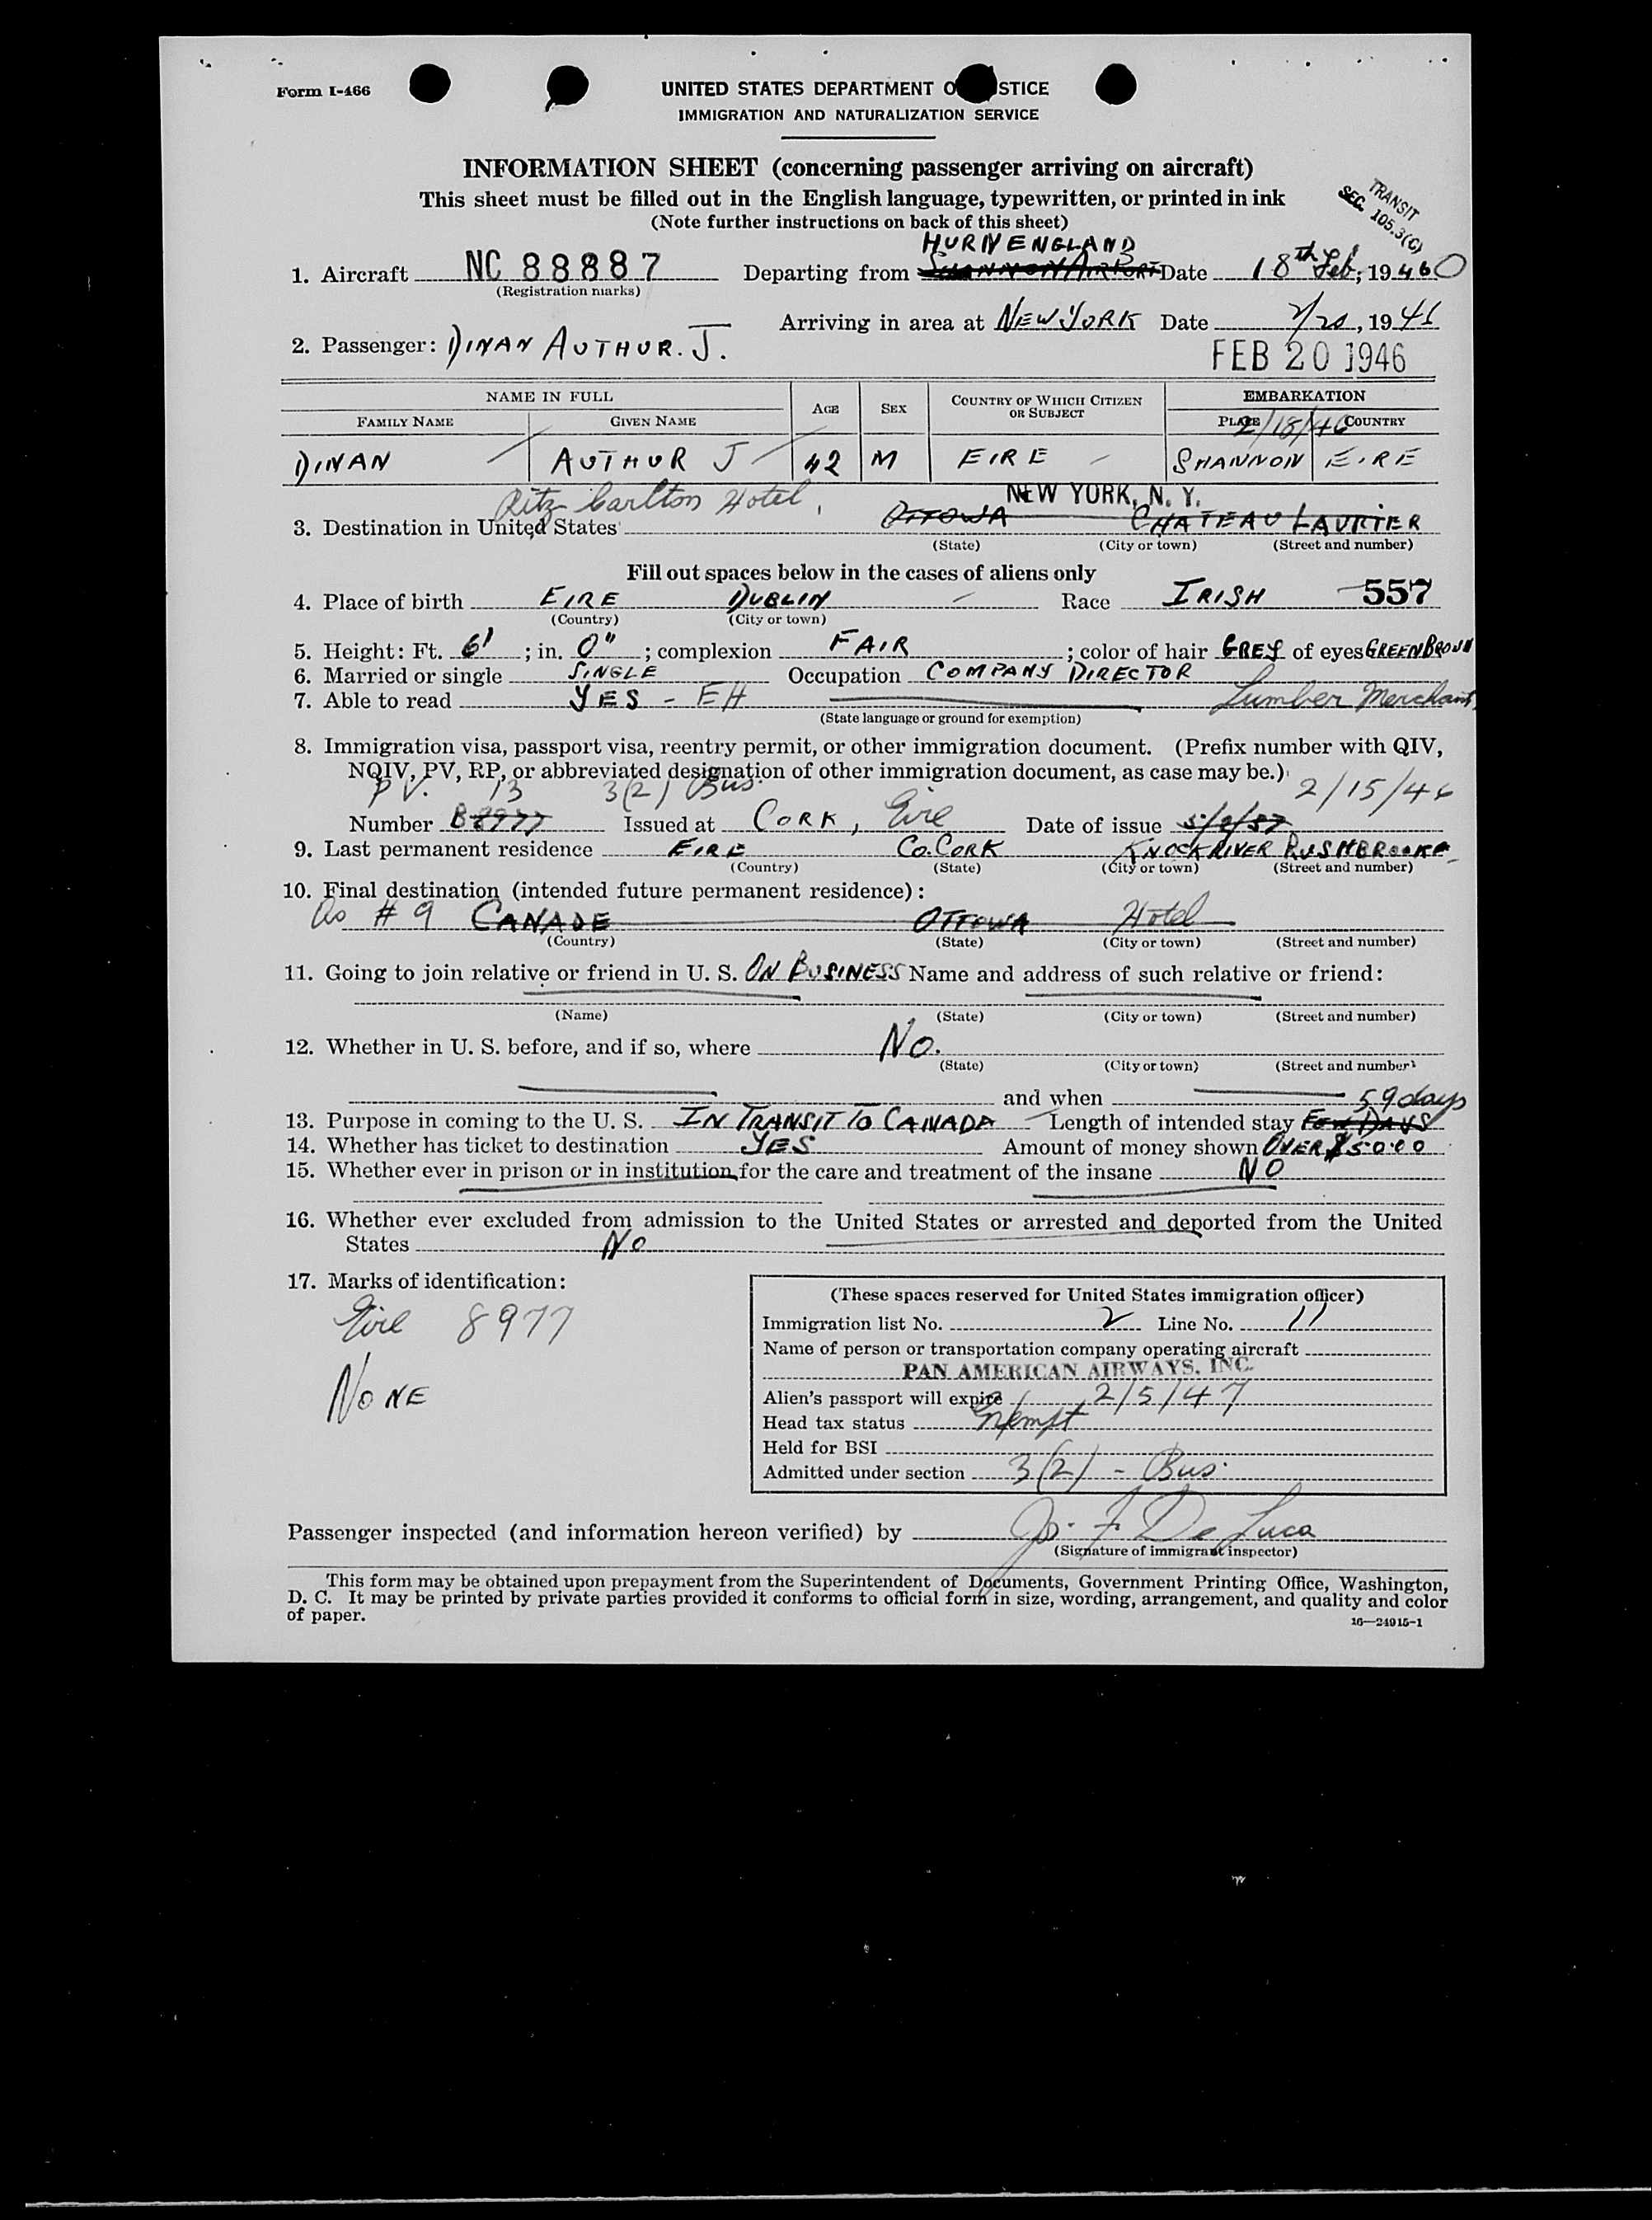 Form I-466
UNITED STATES DEPARTMENT O STICE
IMMIGRATION AND NATURALIZATION SERVICE
INFORMATION SHEET (concerning passenger arriving on aircraft)
This sheet must be filled out in the English language, typewritten, or printed in ink
(Note further instructions on back of this sheet)
TRANSIT
SEC. 105.3(C)
HURN ENGLAND
1. Aircraft NC 88887 Departing from SHANNON AIRPORT Date 18th Feb, 1946
(Registration marks)
Arriving in area at NEW YORK Date 2/20, 1946
2. Passenger: DINAN AUTHUR. J.
FEB 20 1946
NAME IN FULL AGE SEX COUNTRY OF WHICH CITIZEN OR SUBJECT EMBARKATION
FAMILY NAME GIVEN NAME PLACE COUNTRY
2/18/46
DINAN AUTHUR J 42 M EIRE SHANNON EIRE
Ritz Carlton Hotel, NEW YORK, N. Y.
3. Destination in United States OTTOWA CHATEAU LAURIER
(State) (City or town) (Street and number)
Fill out spaces below in the cases of aliens only
4. Place of birth EIRE DUBLIN Race IRISH 557
(Country) (City or town)
5. Height: Ft. 6' ; in. 0" ; complexion FAIR ; color of hair GREY of eyes GREEN BROWN
6. Married or single SINGLE Occupation COMPANY DIRECTOR
7. Able to read YES - EH Lumber Merchant
(State language or ground for exemption)
8. Immigration visa, passport visa, reentry permit, or other immigration document. (Prefix number with QIV,
NQIV, PV, RP, or abbreviated designation of other immigration document, as case may be.)
PV. 13 3(2) Bus. 2/15/46
Number B8977 Issued at CORK, Eire Date of issue
9. Last permanent residence EIRE Co. CORK KNOCKRIVER RUSHBROOKE
(Country) (State) (City or town) (Street and number)
10. Final destination (intended future permanent residence):
As # 9 CANADE OTTOWA Hotel
(Country) (State) (City or town) (Street and number)
11. Going to join relative or friend in U. S. ON BUSINESS Name and address of such relative or friend:
(Name) (State) (City or town) (Street and number)
12. Whether in U. S. before, and if so, where No.
(State) (City or town) (Street and number)
and when 59 days
13. Purpose in coming to the U. S. IN TRANSIT TO CANADA Length of intended stay FEW DAYS
14. Whether has ticket to destination YES Amount of money shown OVER $5000
15. Whether ever in prison or in institution for the care and treatment of the insane NO
16. Whether ever excluded from admission to the United States or arrested and deported from the United
States No
17. Marks of identification:
Eire 8977
NONE
(These spaces reserved for United States immigration officer)
Immigration list No. 2 Line No. 11
Name of person or transportation company operating aircraft
PAN AMERICAN AIRWAYS, INC.
Alien's passport will expire 2/5/47
Head tax status Exempt
Held for BSI
Admitted under section 3(2) - Bus.
Passenger inspected (and information hereon verified) by Jos. F. De Luca
(Signature of immigrant inspector)
This form may be obtained upon prepayment from the Superintendent of Documents, Government Printing Office, Washington,
D. C. It may be printed by private parties provided it conforms to official form in size, wording, arrangement, and quality and color
of paper.
16—24915-1